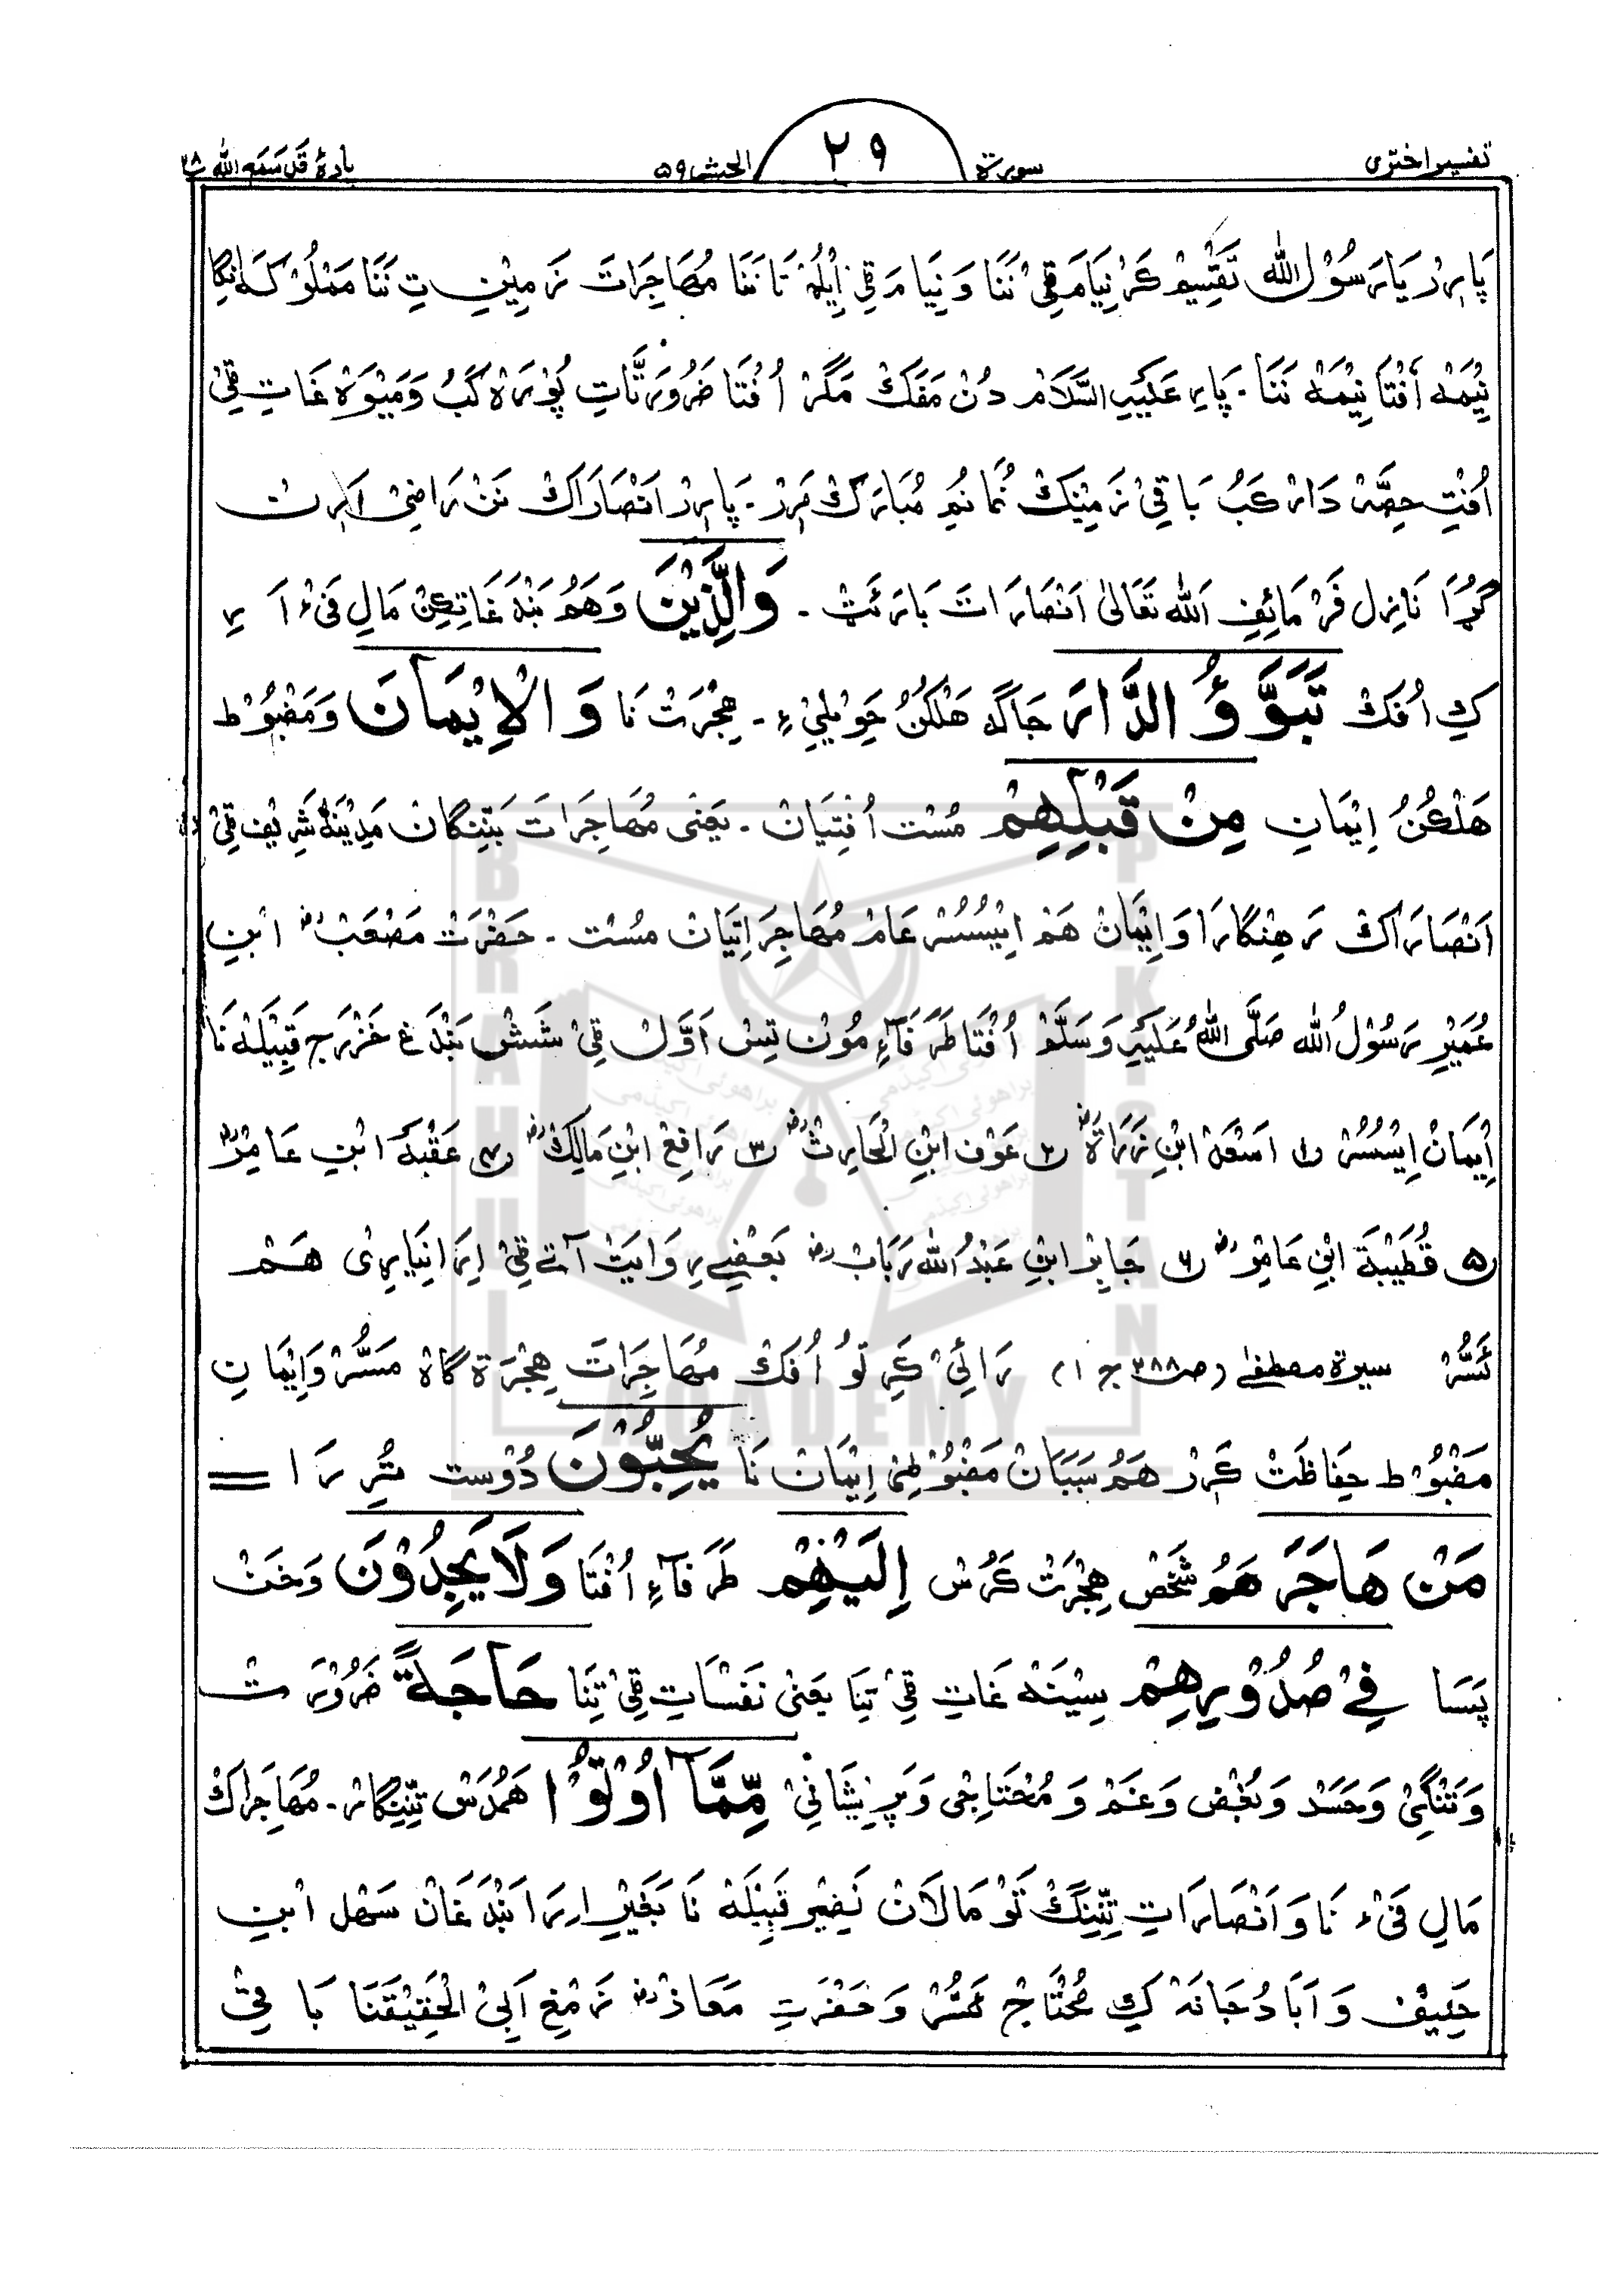 تفسیر اختری سورۃ ۲۹ الحشر ۵۹ پارۂ قد سمع اللہ ۲۸
پَارِرْ یَا رَسُوْلَ اللّٰہ تَقْسِیْم کَرْ نِیَامَ قِیْ نَنَا وَ نِیَامَ قِیْ اِیْلُمْ تَا نَنَا مُھَاجِرَاتَ زَمِیْنِ تِ نَنَا مَمْلُوْکَہ
نِیْمَہْ اُفْتَا نِیْمَہْ نَنَا۔ پَارِ عَلَیْہِ السَّلَامْ دُنْ مَفَکْ مَگَرْ اُفْتَا ضَرُوْرَتَاتِ پُوْرَہْ کَبُ وَ مَیْوَہْ غَاتِ قِیْ
اُفْتِ حِصَّہْ دَارْ کَبُ بَاقِیْ زَمِیْنَکْ نُمَا نُمِ مُبَارَکْ مَرِرْ۔ پَارِرْ اَنْصَارَاکْ نَنْ رَاضِیْ اَرِتْ
گُڑَا نَازِل فَرْمَائِفِ اَللّٰہ تَعَالیٰ اَنْصَارَاتَ بَارَئَٹْ۔ وَالَّذِیْنَ وَ ھَمُ بَنْدَغَاتِکِنْ مَالِ فَیْءِ اَرِ
کِ اُفَکْ تَبَوَّؤُ الدَّارَ جَاگَہ ھَلْکُنُ حَوِیْلِیْءِ۔ ھِجْرَتْ نَا وَالْاِیْمَانَ وَ مَضْبُوْط
ھَلْکُنُ اِیْمَانِ مِنْ قَبْلِھِمْ مُسْت اُفْتِیَانْ۔ یَعْنی مُھَاجِرَاتَ بَنِّنْگَان مَدِیْنَۂ شَرِیْف قِیْ
اَنْصَارَاکْ رَھِنْگَارَا وَ اِیْمَانْ ھَمْ اِیْسُسُرْ عَامْ مُھَاجِرَاتِیَانْ مُسْت۔ حَضْرَتْ مَصْعَبْ رض ابْنِ
عُمَیْرِ رَسُوْلُ اللّٰہ صَلَّی اللّٰہُ عَلَیْہِ وَسَلَّمْ اُفْتَا طَرَفَآءِ مُوْن تِس اَوَّلْ قِیْ شَشْ بَنْدَغ خَزْرَج قَبِیْلَہْ نَا
اِیْمَانْ اِیْسُسُرْ (۱) اَسْعَدْ ابْنِ زَرَارَۃْ رض (۲) عَوْف ابْنِ الْحَارِثْ رض (۳) رَافِعْ ابْنِ مَالِکْ رض (۴) عَقْبَہ ابْنِ عَامِرْ رض
(۵) قُطَیْبَۃَ ابْنِ عَامِرْ رض (۶) جَابِرْ ابْنِ عَبْدُ اللّٰہ رَبَابْ رض بَعْضِے رِوَایَتْ آتے قِیْ اِرَا نِیَایِرِیْ ھَمْ
ئَسُّرْ سیرۃ مصطفےٰ (ص۳۸۸ ج ۱) رَائِیْ کَرِ تَوْ اُفَکْ مُھَاجِرَاتَ ھِجْرَۃ گَاہْ مَسُّرْ وَ اِیْمَانِ
مَضْبُوْط حِفَاظَتْ کَرِرْ ھَمُ سَبَبَانْ مَضْبُوْطِیْ اِیْمَانْ نَا یُحِبُّوْنَ دُوْست تُرِرَا
مَنْ ھَاجَرَ ھَمُ شَخْص ھِجْرَتْ کَرُسْ اِلَیْھِمْ طَرَفَآءِ اُفْتَا وَلَا یَجِدُوْنَ وَ خَنْ
پَسَا فِیْ صُدُوْرِھِمْ سِیْنَہْ غَاتِ قِیْ تِنَا یعنی نَفْسَاتِ قِیْ تِنَا حَاجَۃً ضَرُوْرَتْ
وَ تَنْگِیْ وَ حَسَدْ وَ بُغْض وَ غَمْ وَ مُحْتَاجِی وَ پَرِیْشَانِیْ مِّمَّآ اُوْتُوْا ھَمُدَسْ تِنِّنْگَارْ۔ مُھَاجِرَاکْ
مَالِ فَیْءِ نَا وَ اَنْصَارَاتِ تِنِّنْگَ تَوْ مَالَانْ نَضِیْر قَبِیْلَہْ نَا بَغَیْرِ اِرَا بَنْدَغَانْ سَھْل ابْنِ
حَلِیْف وَ اَبَادُجَانَہْ کِ مُحْتَاجْ ئَسُّرْ وَ حَضْرَتِ مَعَاذْ رض زَمْغِ اَبِیْ الْحَقِیْقَنَا بَاقِیْ
BRAHUI ACADEMY PAKISTAN